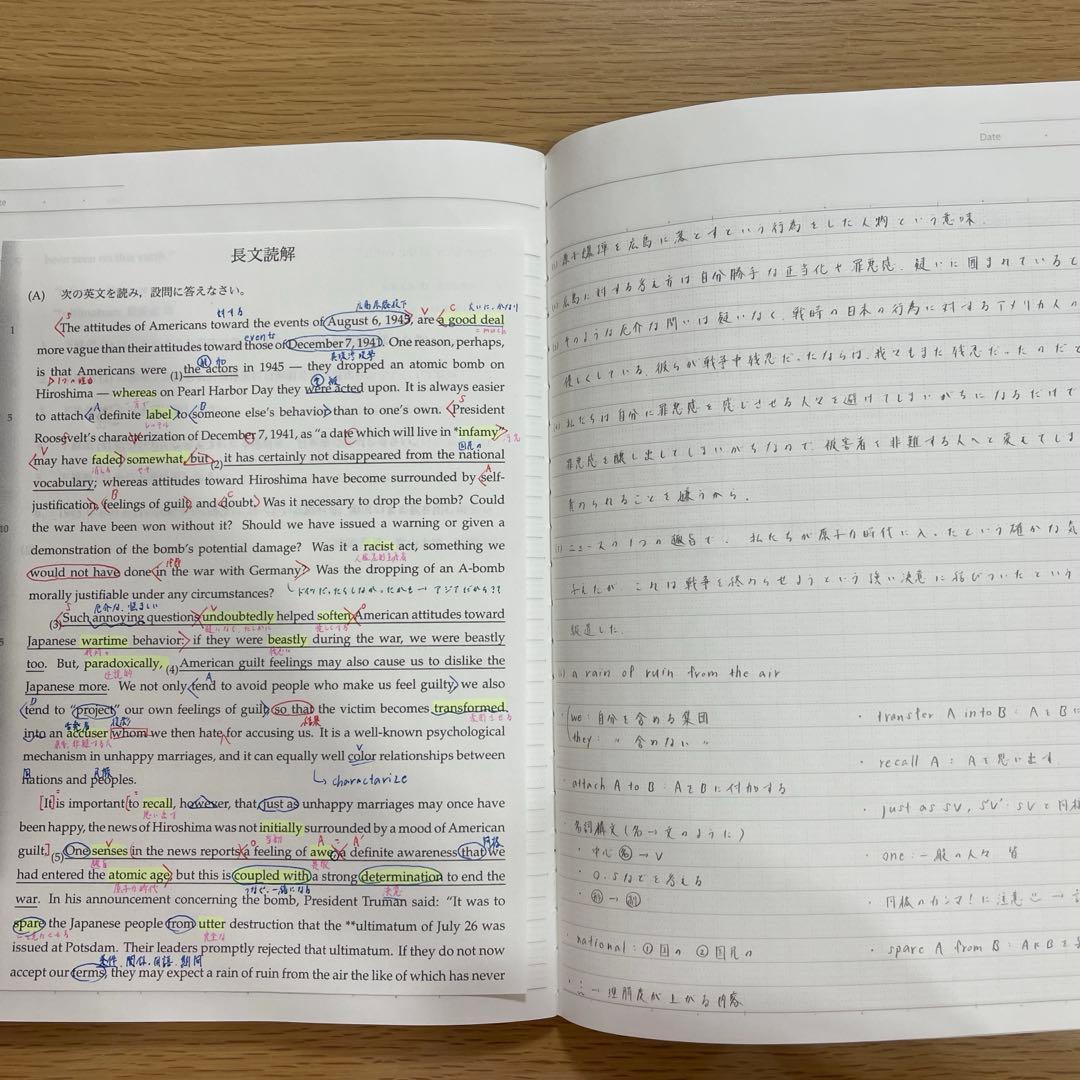 長文読解
(A) 次の英文を読み，設問に答えなさい。
対する
広島原爆投下
大いに、かなり
1 The attitudes of Americans toward the events of August 6, 1945, are a good deal
= much
events
more vague than their attitudes toward those of December 7, 1941. One reason, perhaps,
真珠湾攻撃
is that Americans were (1)the actors in 1945 — they dropped an atomic bomb on
1つの理由
Hiroshima — whereas on Pearl Harbor Day they were acted upon. It is always easier
5 to attach a definite label to someone else's behavior than to one's own. President
Roosevelt's characterization of December 7, 1941, as "a date which will live in *infamy"
国民の
may have faded somewhat, but (2)it has certainly not disappeared from the national
vocabulary; whereas attitudes toward Hiroshima have become surrounded by self-
justification, feelings of guilt, and doubt. Was it necessary to drop the bomb? Could
10 the war have been won without it? Should we have issued a warning or given a
demonstration of the bomb's potential damage? Was it a racist act, something we
would not have done in the war with Germany? Was the dropping of an A-bomb
morally justifiable under any circumstances?
厄介な、悩ましい
(3)Such annoying questions undoubtedly helped soften American attitudes toward
5 Japanese wartime behavior: if they were beastly during the war, we were beastly
too. But, paradoxically, (4)American guilt feelings may also cause us to dislike the
逆説的
Japanese more. We not only tend to avoid people who make us feel guilty, we also
tend to "project" our own feelings of guilt so that the victim becomes transformed
結果
変形させる
into an accuser whom we then hate for accusing us. It is a well-known psychological
mechanism in unhappy marriages, and it can equally well color relationships between
民族
nations and peoples.
charactarize
It is important to recall, however, that just as unhappy marriages may once have
思い出す
been happy, the news of Hiroshima was not initially surrounded by a mood of American
当初
同格
guilt. (5)One senses in the news reports a feeling of awe, a definite awareness that we
had entered the atomic age, but this is coupled with a strong determination to end the
原子力時代
決意
war. In his announcement concerning the bomb, President Truman said: "It was to
spare the Japanese people from utter destruction that the **ultimatum of July 26 was
完全な
issued at Potsdam. Their leaders promptly rejected that ultimatum. If they do not now
条件、関係、用語、期間
accept our terms, they may expect a rain of ruin from the air the like of which has never
Date
原子爆弾を広島に落とすという行為をした人物という意味.
広島に対する考え方は自分勝手な正当化や罪悪感、疑いに囲まれていると
そのような厄介な問いは疑いなく、戦時の日本の行為に対するアメリカ人の
優しくしている. 彼らが戦争中残忍だったならば、我々もまた残忍だったのだと
私たちは自分に罪悪感を感じさせる人々を避けてしまいがちになるだけで
罪悪感を醸し出してしまいがちなので、被害者を非難する人へと変えてしま
責められることを嫌うから.
ニュースの1つの趣旨で、私たちが原子力時代に入ったという確かな気
与えたが、これは戦争を終わらせようという強い決意に結びついたという
報道した.
a rain of ruin from the air
we : 自分を含める集団
they : 〃 含めない 〃
・ transfer A into B : AをBに
・ recall A : Aを思い出す
・ attach A to B : AをBに付加する
・ just as SV, S'V' : SVと同様
・ 名詞構文 (名→文のように)
・ 中心 名 → V
・ one : 一般の人々 皆
・ O, Sなどを考える
・ 同格のカンマ! に注意
・ national : ① 国の ② 国民の
・ spare A from B : AをBを
: → 理解度が上がる内容